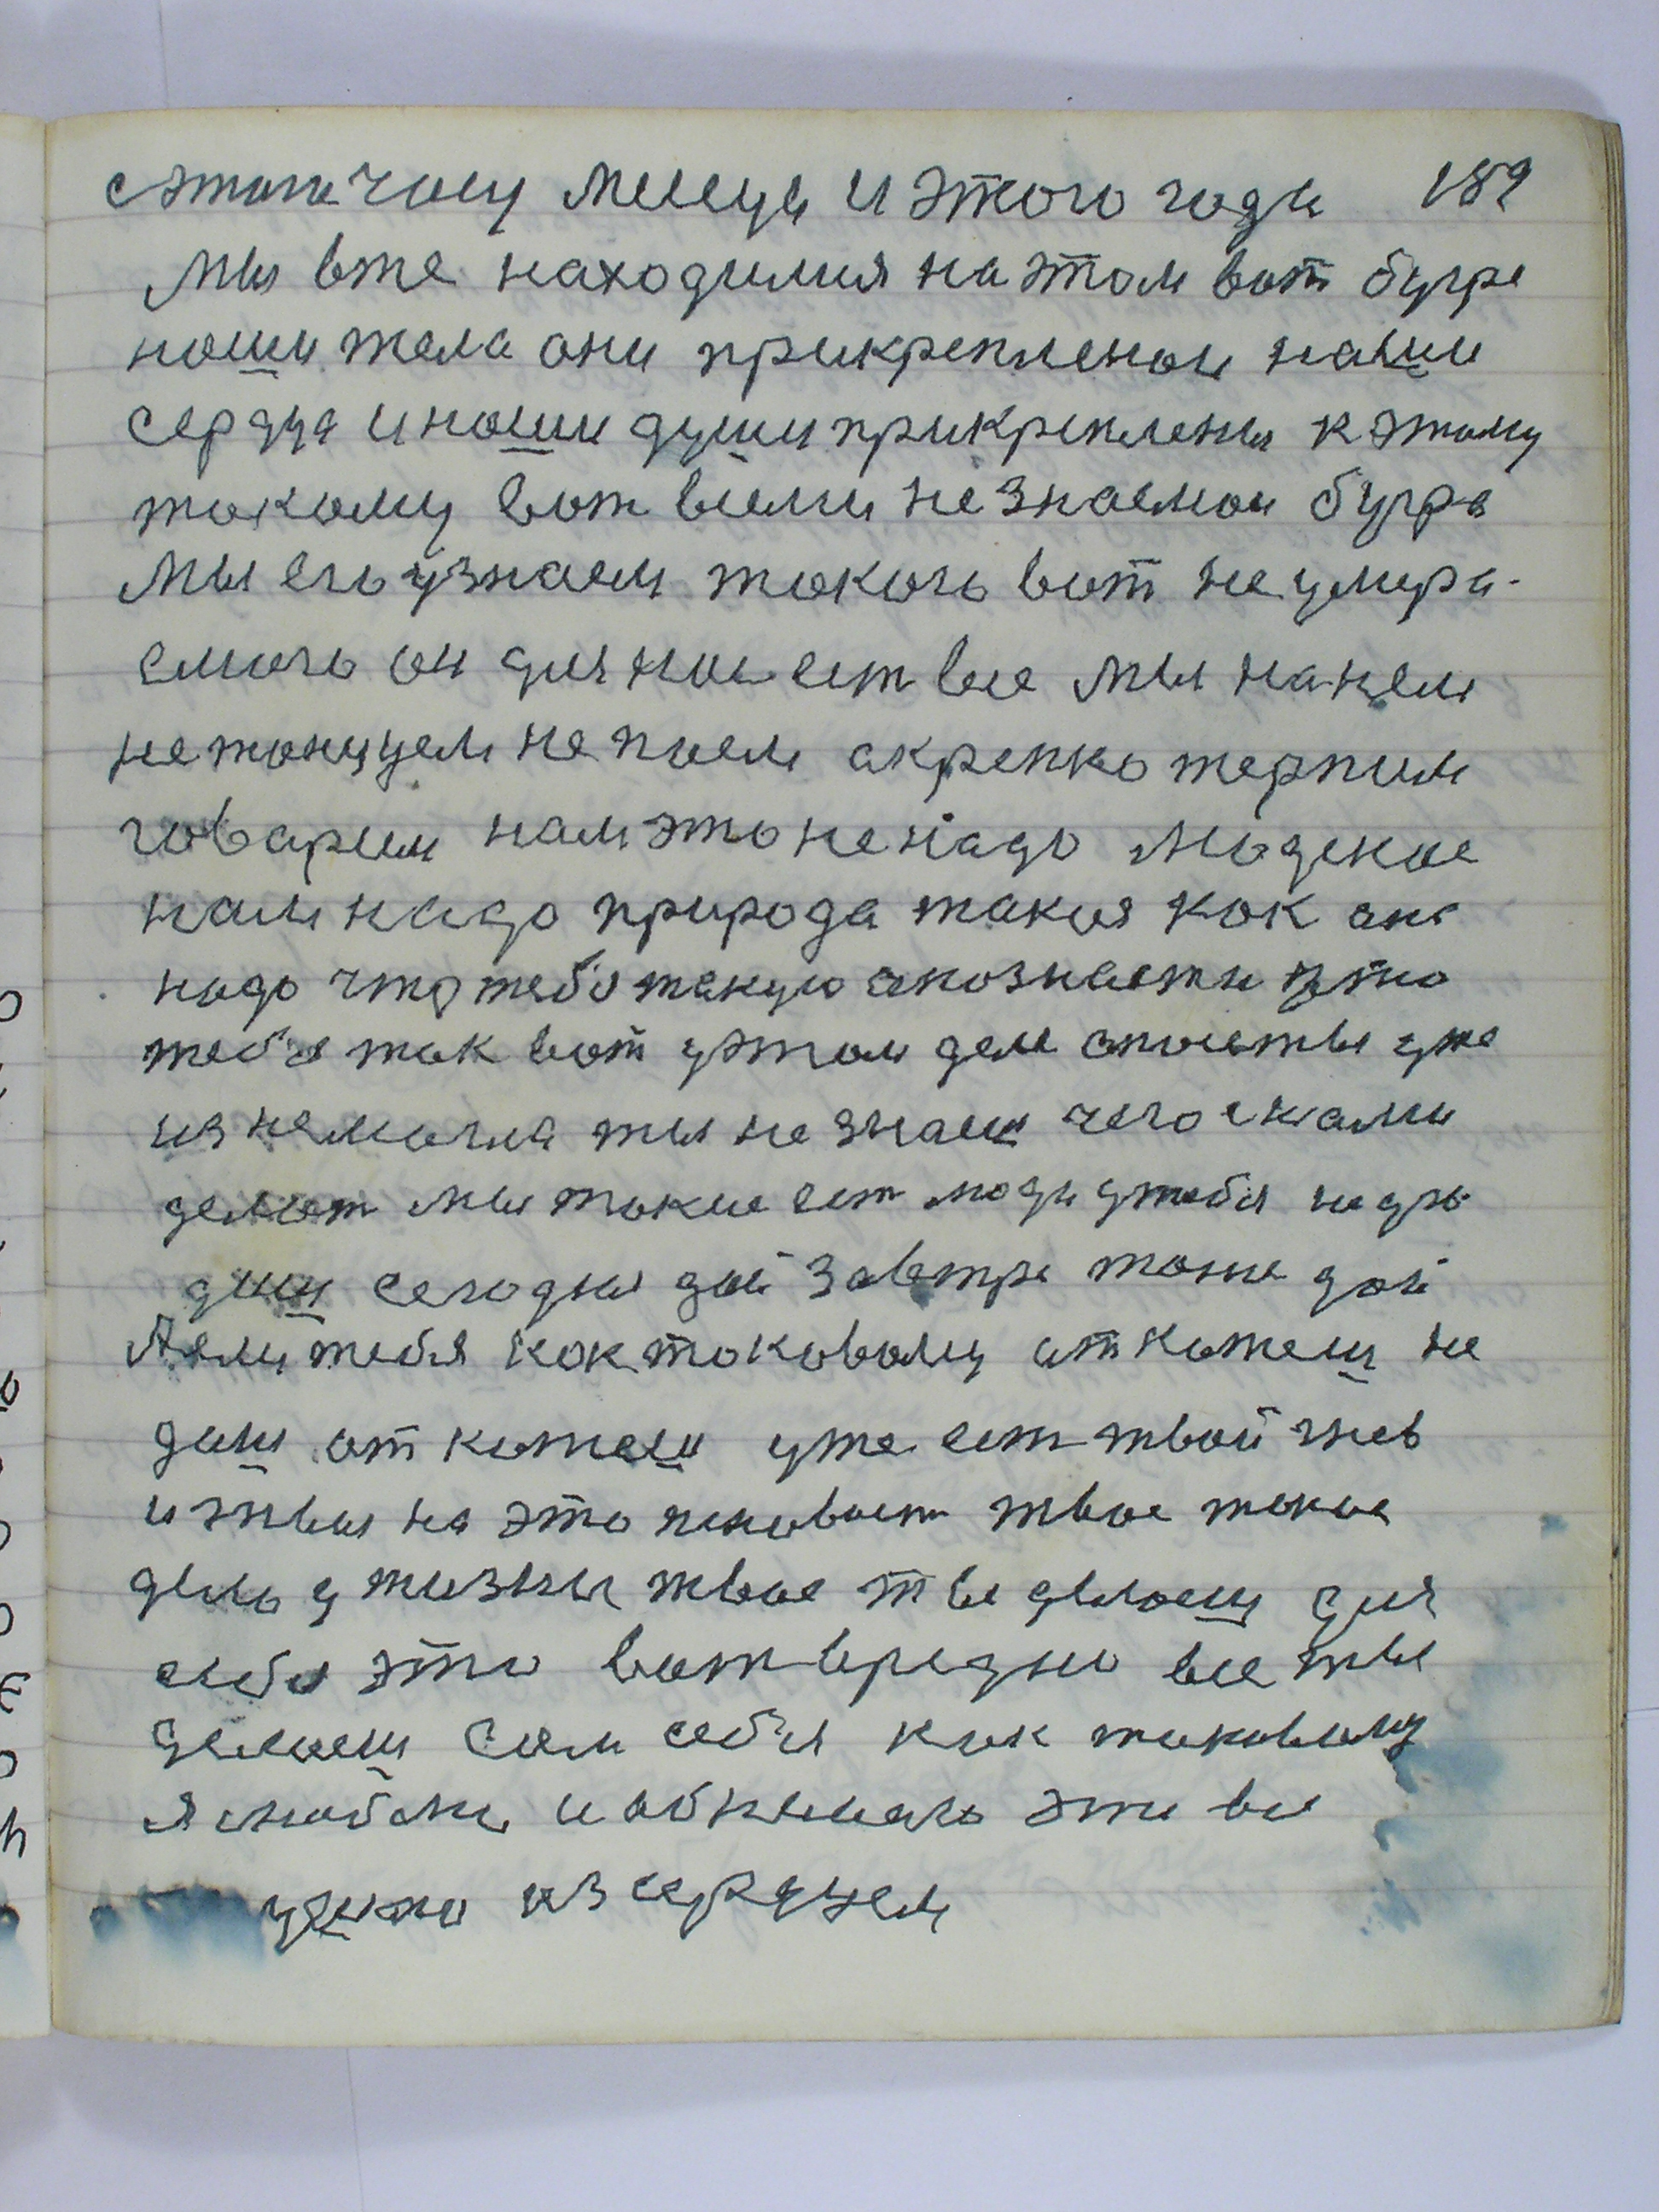 с этого часу месеца и этого года 189
мы вже находимия на этом вот бугре
наши тела они прикрепленои наши
сердца и наши души прикреплены к этому
токому вот всеми не знаемои бугра
мы его узнаем токого вот не умира-
емого он для нас ест все мы на нем
не тонцуем не поем а крепко терпим
говарим нам это не надо людское
нам надо природа такия как она
надо что тебя такую
тебя так вот у этом деле уже
из немогла ты не знаеш чего с нами
делат мы такие ест люди у тебя
сегодня дай завтре тоже дай
А ели тебя как токовому откожеш не
даш откожеш уже ест твой гнев
и гневы на это твое такое
дело у жизни твое ты делаеш для
себя это вот вредно все ты
делаеш сам себя как токовому
я люблю и эти все
из сердцем